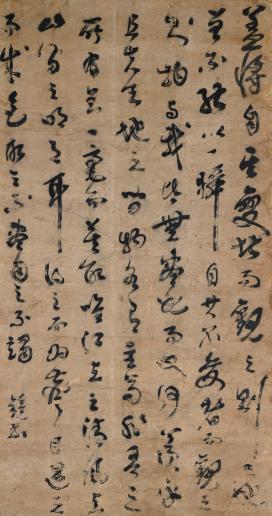 蓋將自其變者而觀之則天地
曾不能以一瞬自其不變者而觀之
則物與我皆無盡也而又何羨乎
且夫天地之間物各有主苟非吾之
所有雖一毫而莫取唯江上之清風與
山間之明月耳得之而為聲目遇之
而成色取之不盡用之不竭